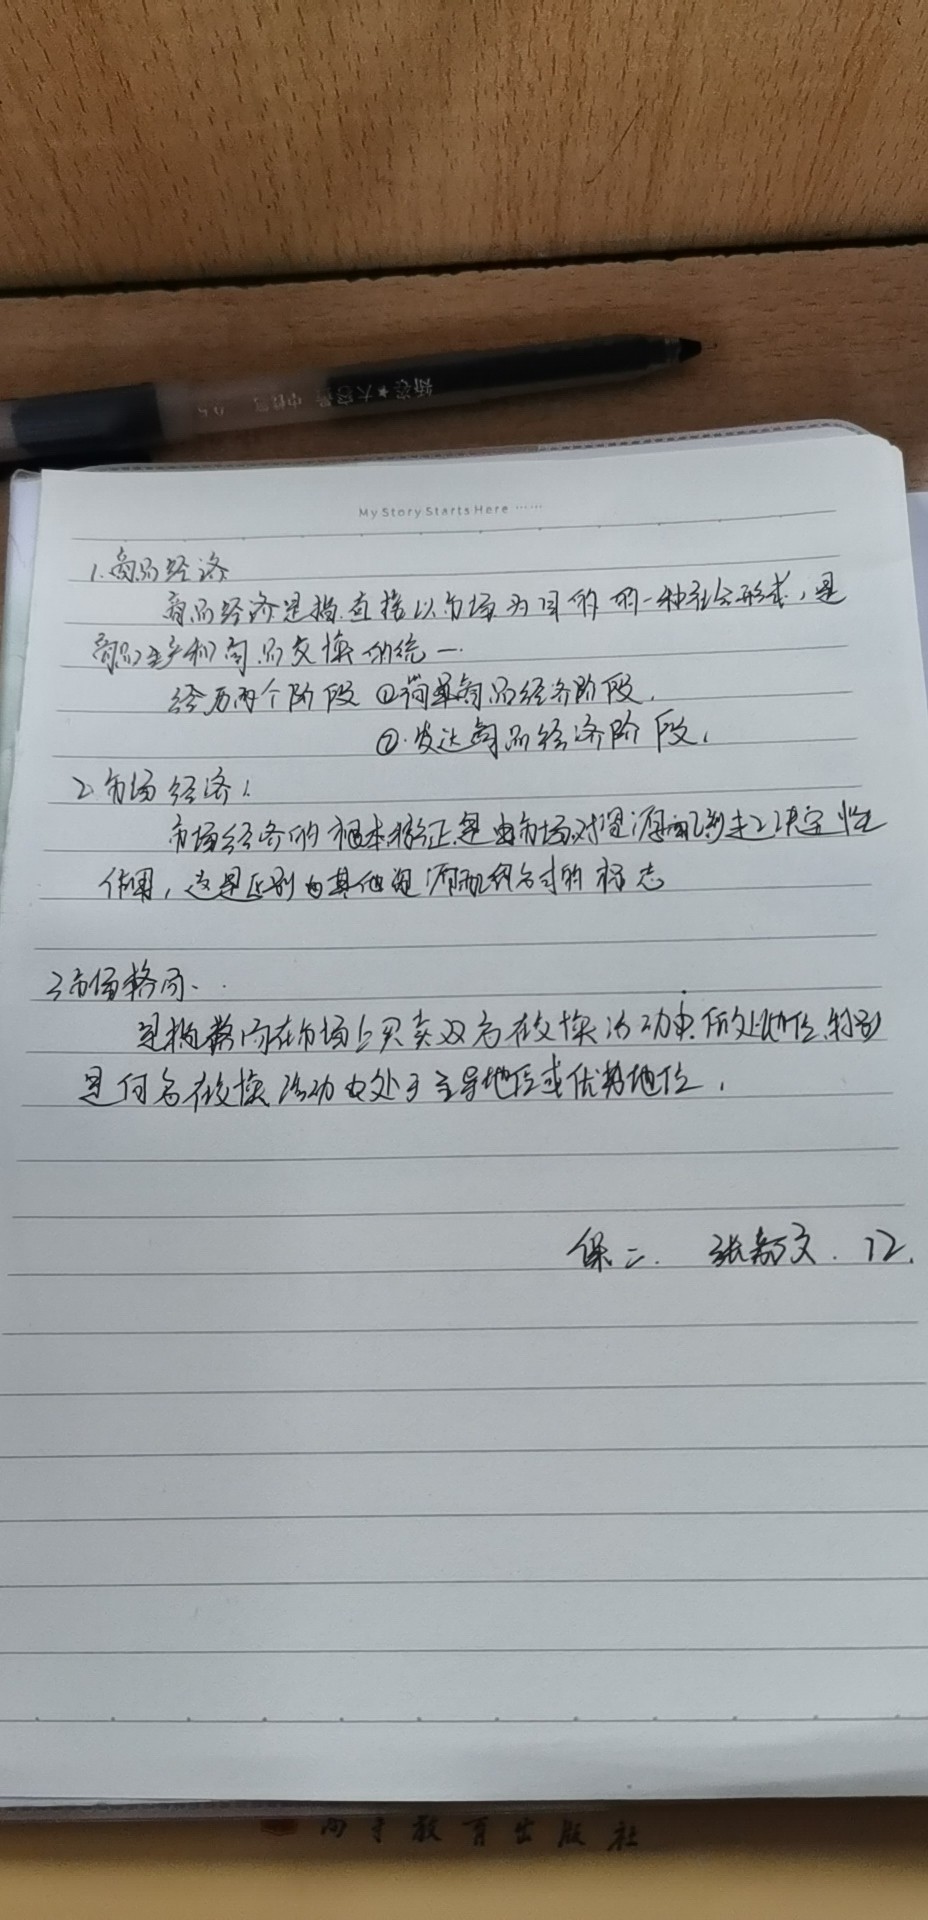 大容量 中性笔 0.5
My Story Starts Here ······
1.商品经济
商品经济是指直接以市场为目的的一种社会形式，是
商品生产和商品交换的统一.
经历两个阶段 ①简单商品经济阶段.
②.发达商品经济阶段.
2.市场经济：
市场经济的根本特征是由市场对资源配置起决定性
作用，这是区别由其他资源配置方式的标志
3.市场格局.
是指格局在市场上买卖双方在交换活动中所处地位,特别
是何方在交换活动中处于主导地位或优势地位.
保二. 张新文. 12.
教育出版社